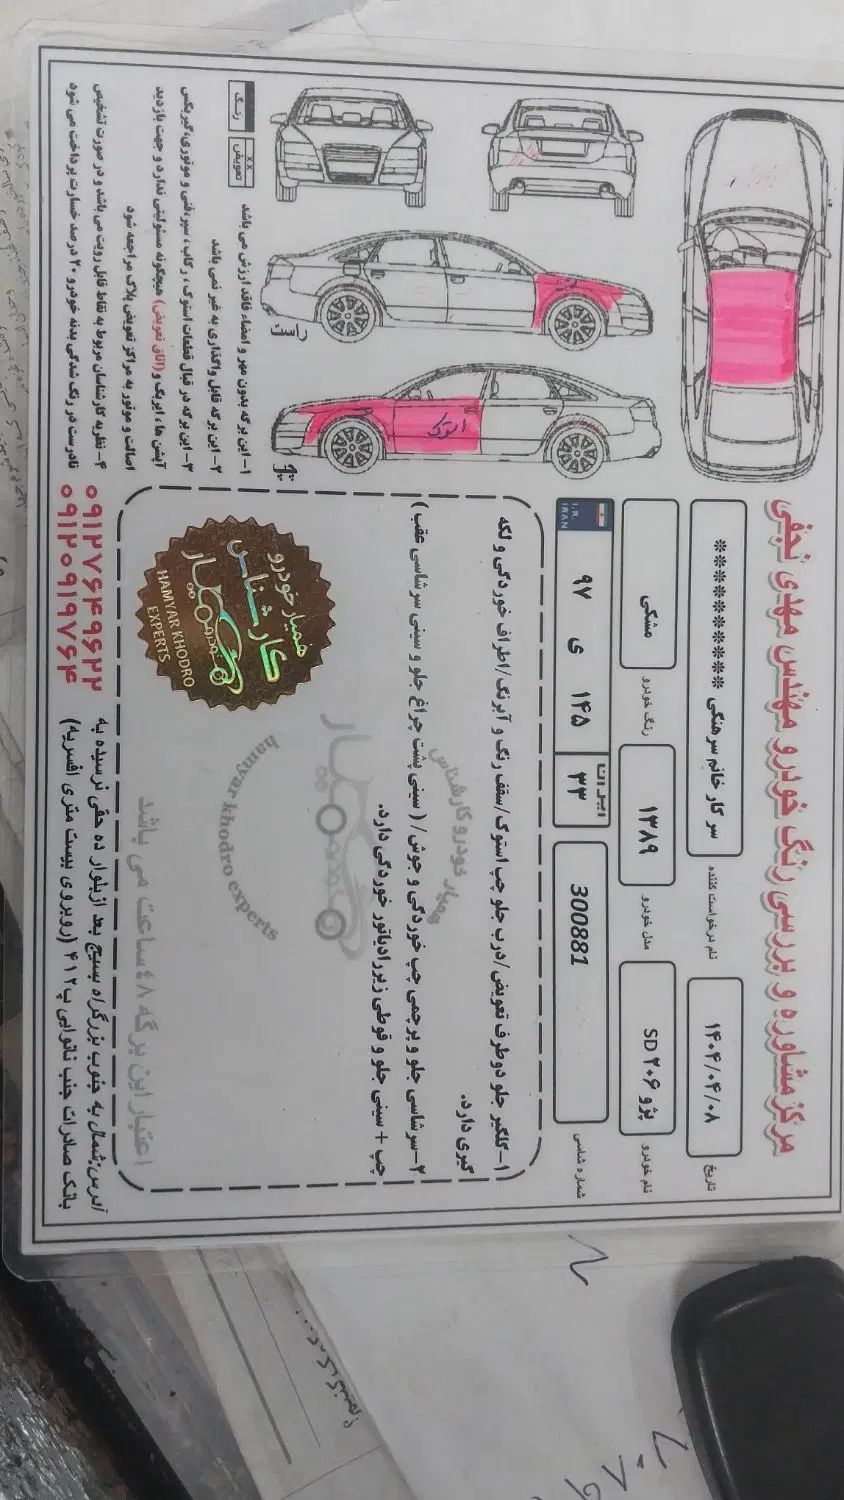 مرکز مشاوره و بررسی رنگ خودرو مهندس مهدی نجفی
تاریخ
۱۴۰۴/۰۴/۰۸
نام درخواست کننده
سرکار خانم سرهنگی **********
نام خودرو
پژو ۲۰۶ SD
مدل خودرو
۱۳۸۹
رنگ خودرو
مشکی
شماره شاسی
300881
ایران
۳۳
۱۴۵ ی ۹۷
I.R.
IRAN
۱-گلگیر جلو دو طرف تعویض/درب جلو چپ استوک/سقف رنگ و آبرنگ/اطراف خوردگی و لکه
گیری دارد.
۲-سرشاسی جلو و پرچمی چپ خوردگی و جوش/( سینی پشت چراغ جلو و سینی سرشاسی عقب)
چپ + سینی جلو و قوطی زیررادیاتور خوردگی دارد.
همیار خودرو کارشناس
hamyar khodro experts
همیار خودرو
کارشناس
HAMYAR KHODRO
EXPERTS
اعتبار این برگه ۴۸ ساعت می باشد
استوک
رنگ
تعویض
××
۱- این برگه بدون مهر و امضاء فاقد ارزش می باشد
۲- این برگه قابل واگذاری به غیر نمی باشد
۳- این برگه در قبال قطعات استوک، رکاب، سپر،فنی و موتوری،گیربکس
آپشن ها، ایربگ و (اتاق تعویض) هیچگونه مسئولیتی ندارد و جهت بازدید
اصالت و موتور به مراکز تعویض پلاک مراجعه شود
۴- نظریه کارشناسان مربوط به نقاط قابل رویت می باشد و در صورت تشخیص
نادرست در رنگ شدگی بدنه خودرو ۲۰ درصد خسارت پرداخت می شود
آدرس:شمال به جنوب بزرگراه بسیج بعد از بلوار ده حقی نرسیده به
بانک صادرات جنب نانوایی پ۴۱۲ (روبروی بیست متری افسریه)
۰۹۱۲۷۶۴۹۶۲۲
۰۹۱۲۰۹۱۹۷۶۴